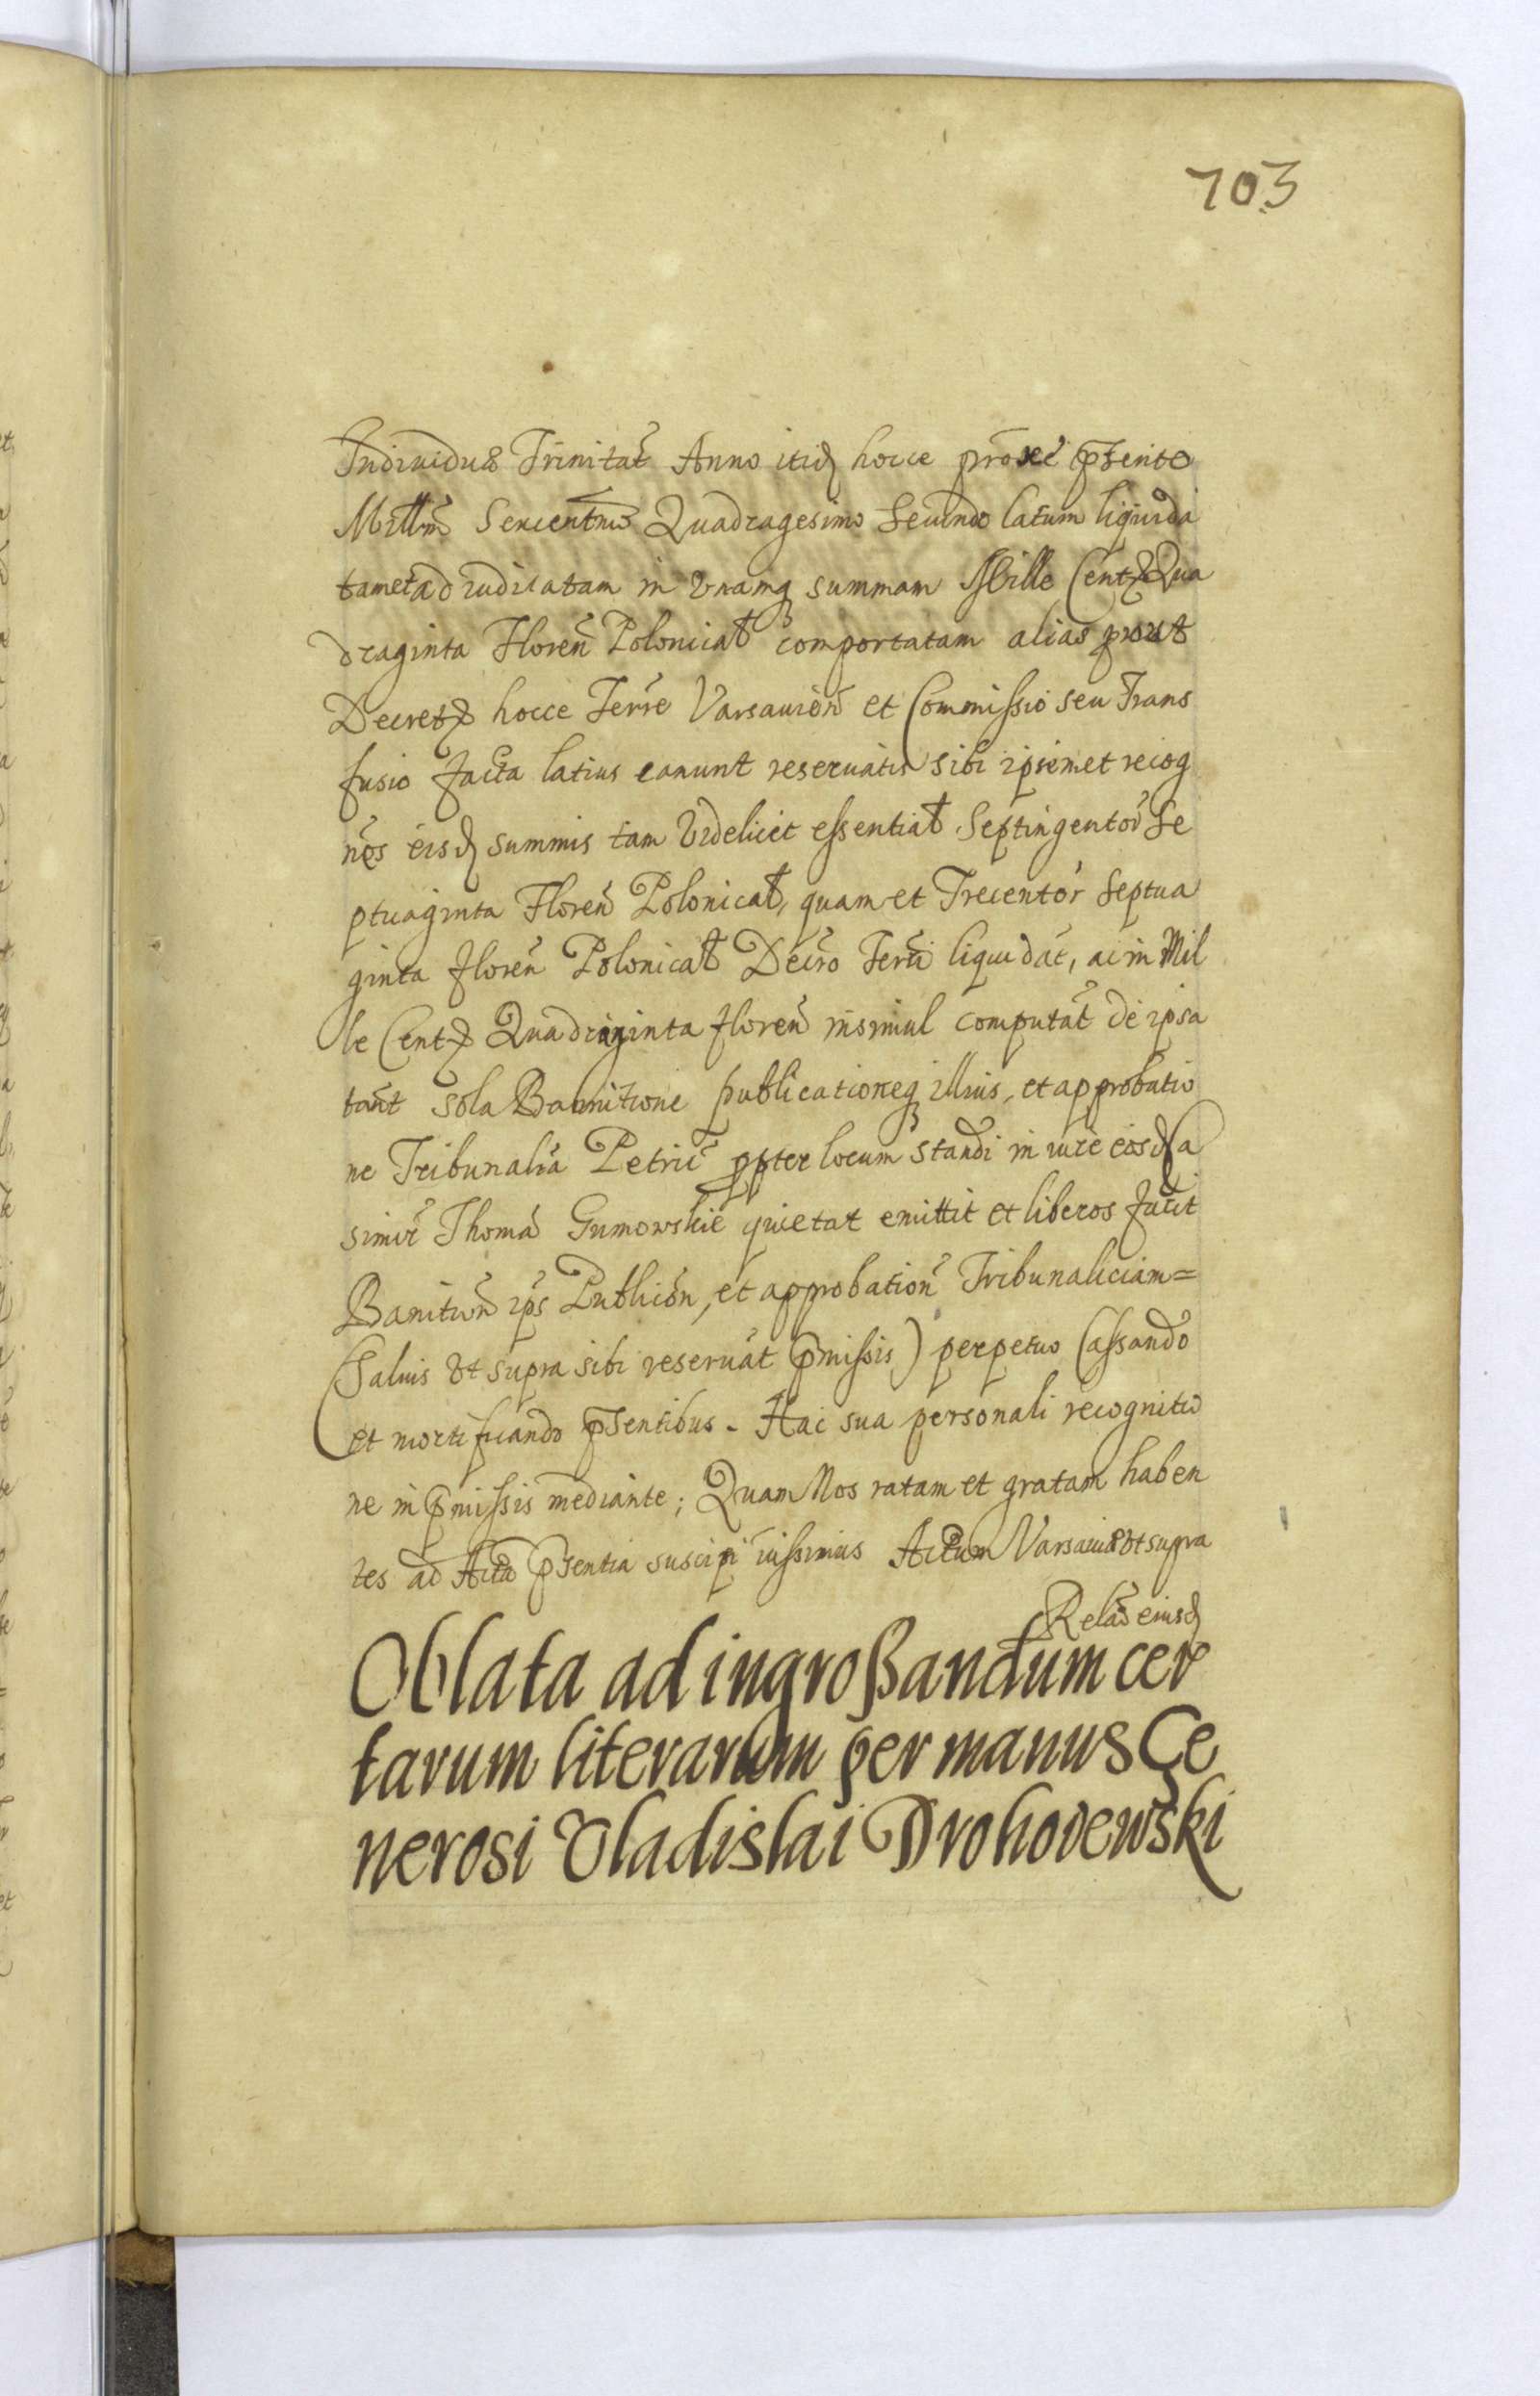 703
Individuæ Trinitat Anno itid hocce proxe pñte
Millmo Sexcentmo Quadragesimo Secundo latum liquida
tam et ad iudicatam in vnamq summam Mille Cent Qua
draginta Floren Polonical comportatam alias prout
Decret hocce Terre Varsavien et Commissio seu Trans
fusio facta latius canunt reseruatis sibi ipsimet recog
nos eisd summis tam Videlicet essential Septingentor Se
ptuaginta Floren Polonical, quam et Trecentor Septua
ginta floren Polonical Decro Terri liquidat, ac in Mil
le Cent Quadraginta floren insimul computat de ipsa
tant sola Bannitione publicationeq illius, et approbatio
ne Tribunalia Petric ppter locum standi in iure eosd Ca
simir Thoma Gumowskie quietat emittit et liberos facit
Banition ips Publicon, et approbation Tribunaliciam=
(Saluis vt supra sibi reseruat pmissis) perpetuo Cassando
et mortificando psentibus. Hac sua personali recognitio
ne in pmissis mediante; Quam Nos ratam et gratam haben
tes ad Acta psentia suscipi iussimus Actum Varsauiæ vt supra
Relao eiusd
Oblata ad ingroßandum cer
tarum literarum per manus Ge
nerosi Vladislai Drohoiewski